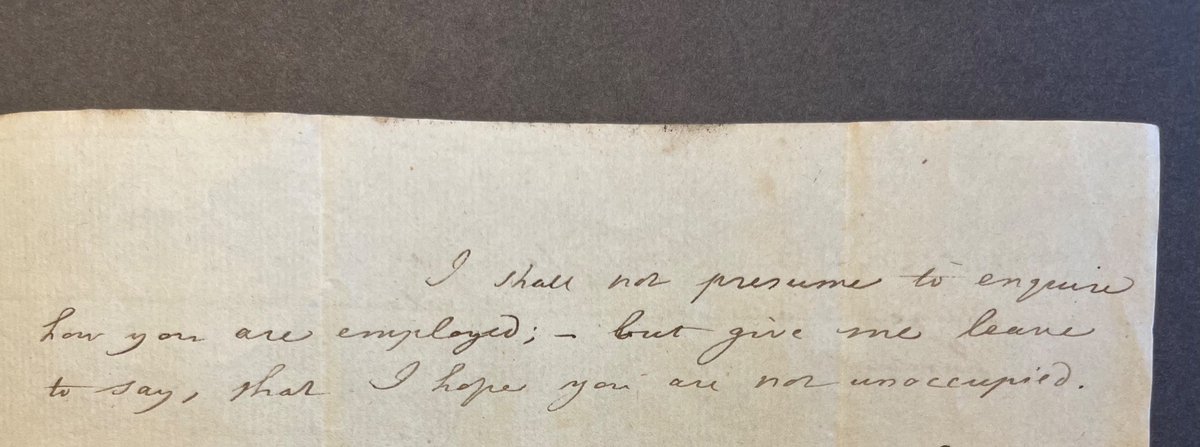 I shall not presume to enquire
how you are employed; – but give me leave
to say, that I hope you are not unoccupied.